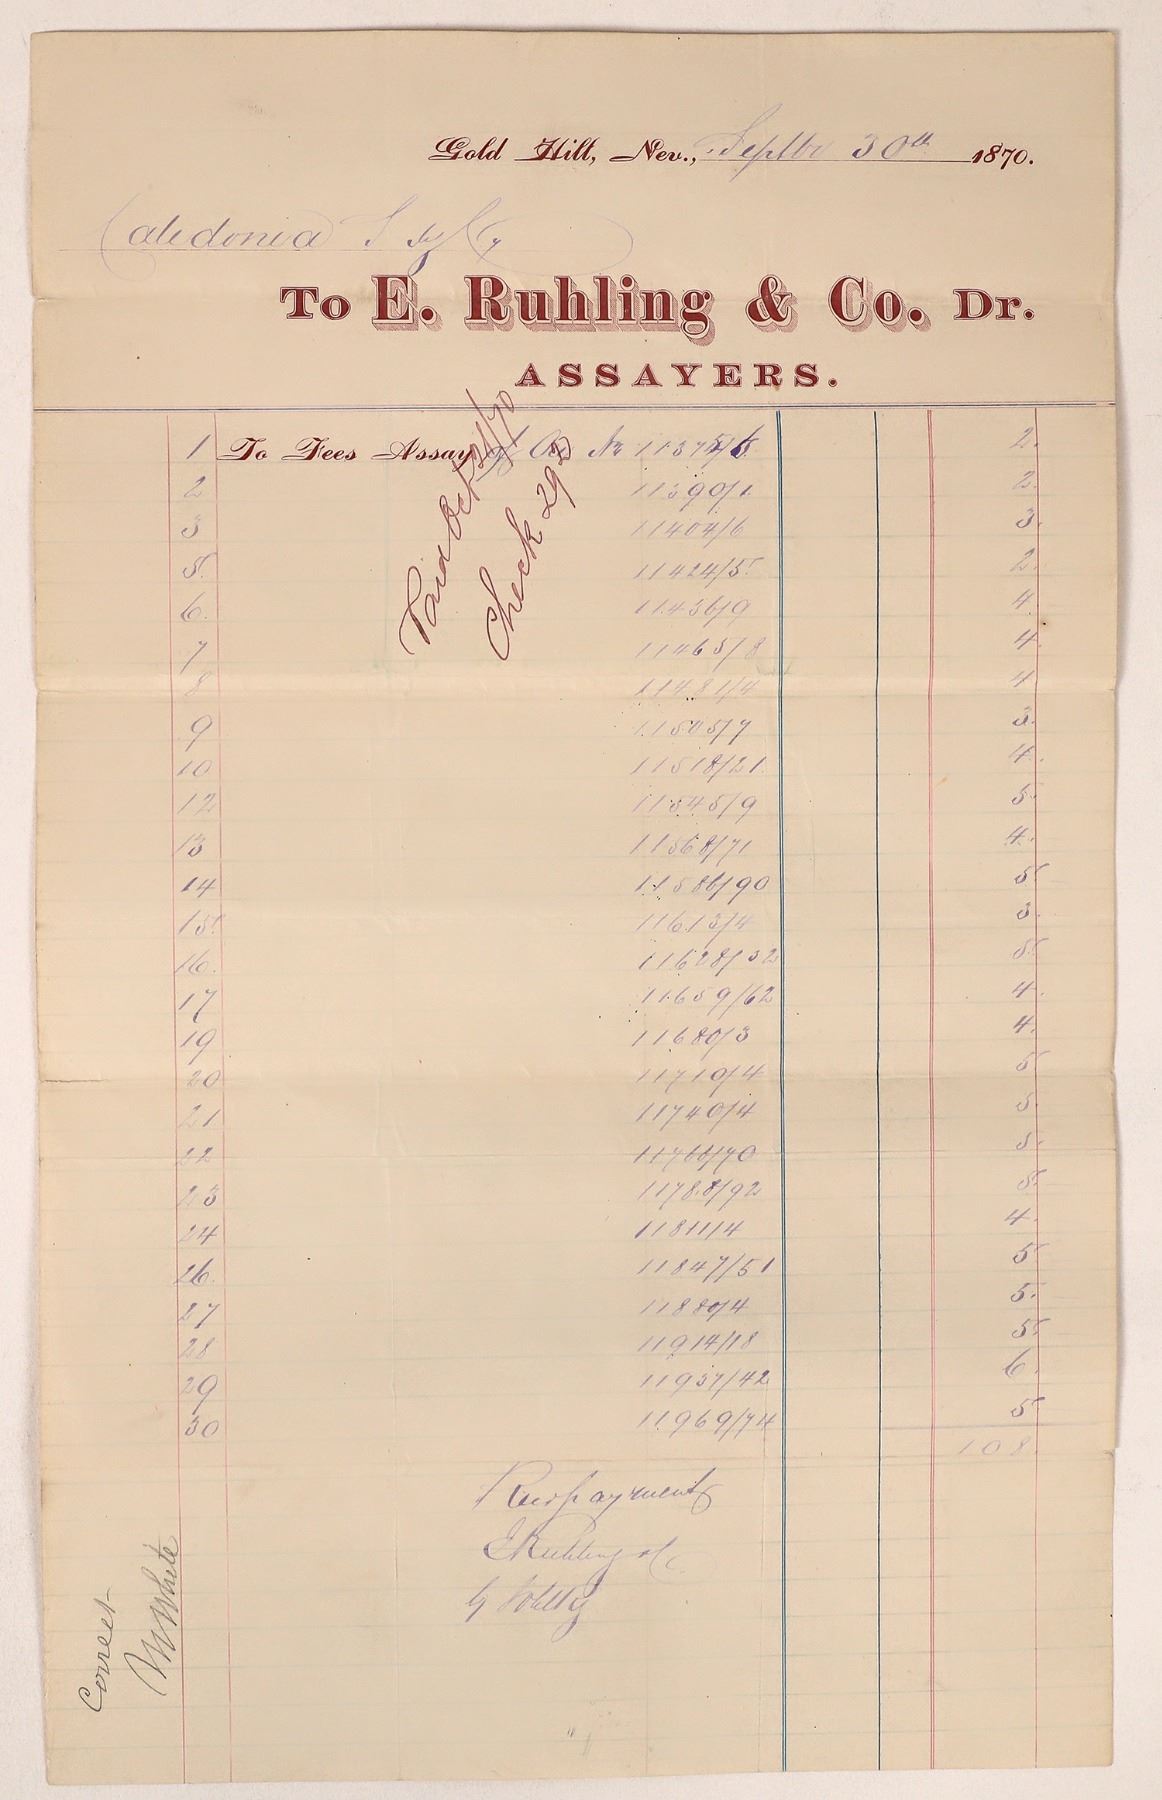 Gold Hill, Nev., Septbr 30th 1870.
Caledonia S Mg Cy
To E. Ruhling & Co. Dr.
ASSAYERS.
1 To Fees Assay of Ore No 11375/6 2.
2 11390/1 2.
3 11404/6 3.
5. 11424/5 2.
6. 11436/9 4
7 11465/8 4.
8 11481/4 4
9 11505/7 3.
10 11518/21. 4.
12 11545/9 5.
13 11568/71 4.
14 11586/90 5.
15. 11613/4 3.
16. 11628/32 5.
17 11659/62 4.
19 11680/3 4.
20 11710/4 5.
21 11740/4 5.
22 11766/70 5.
23 11788/92 5.
24 11811/4 4.
26. 11847/51 5.
27 11880/4 5.
28 11914/18 5.
29 11937/42 6.
30 11969/74 5
108.
Paid Oct 21/70
Check 292
Recd payment
E Ruhling & Co
by
Correct
M White